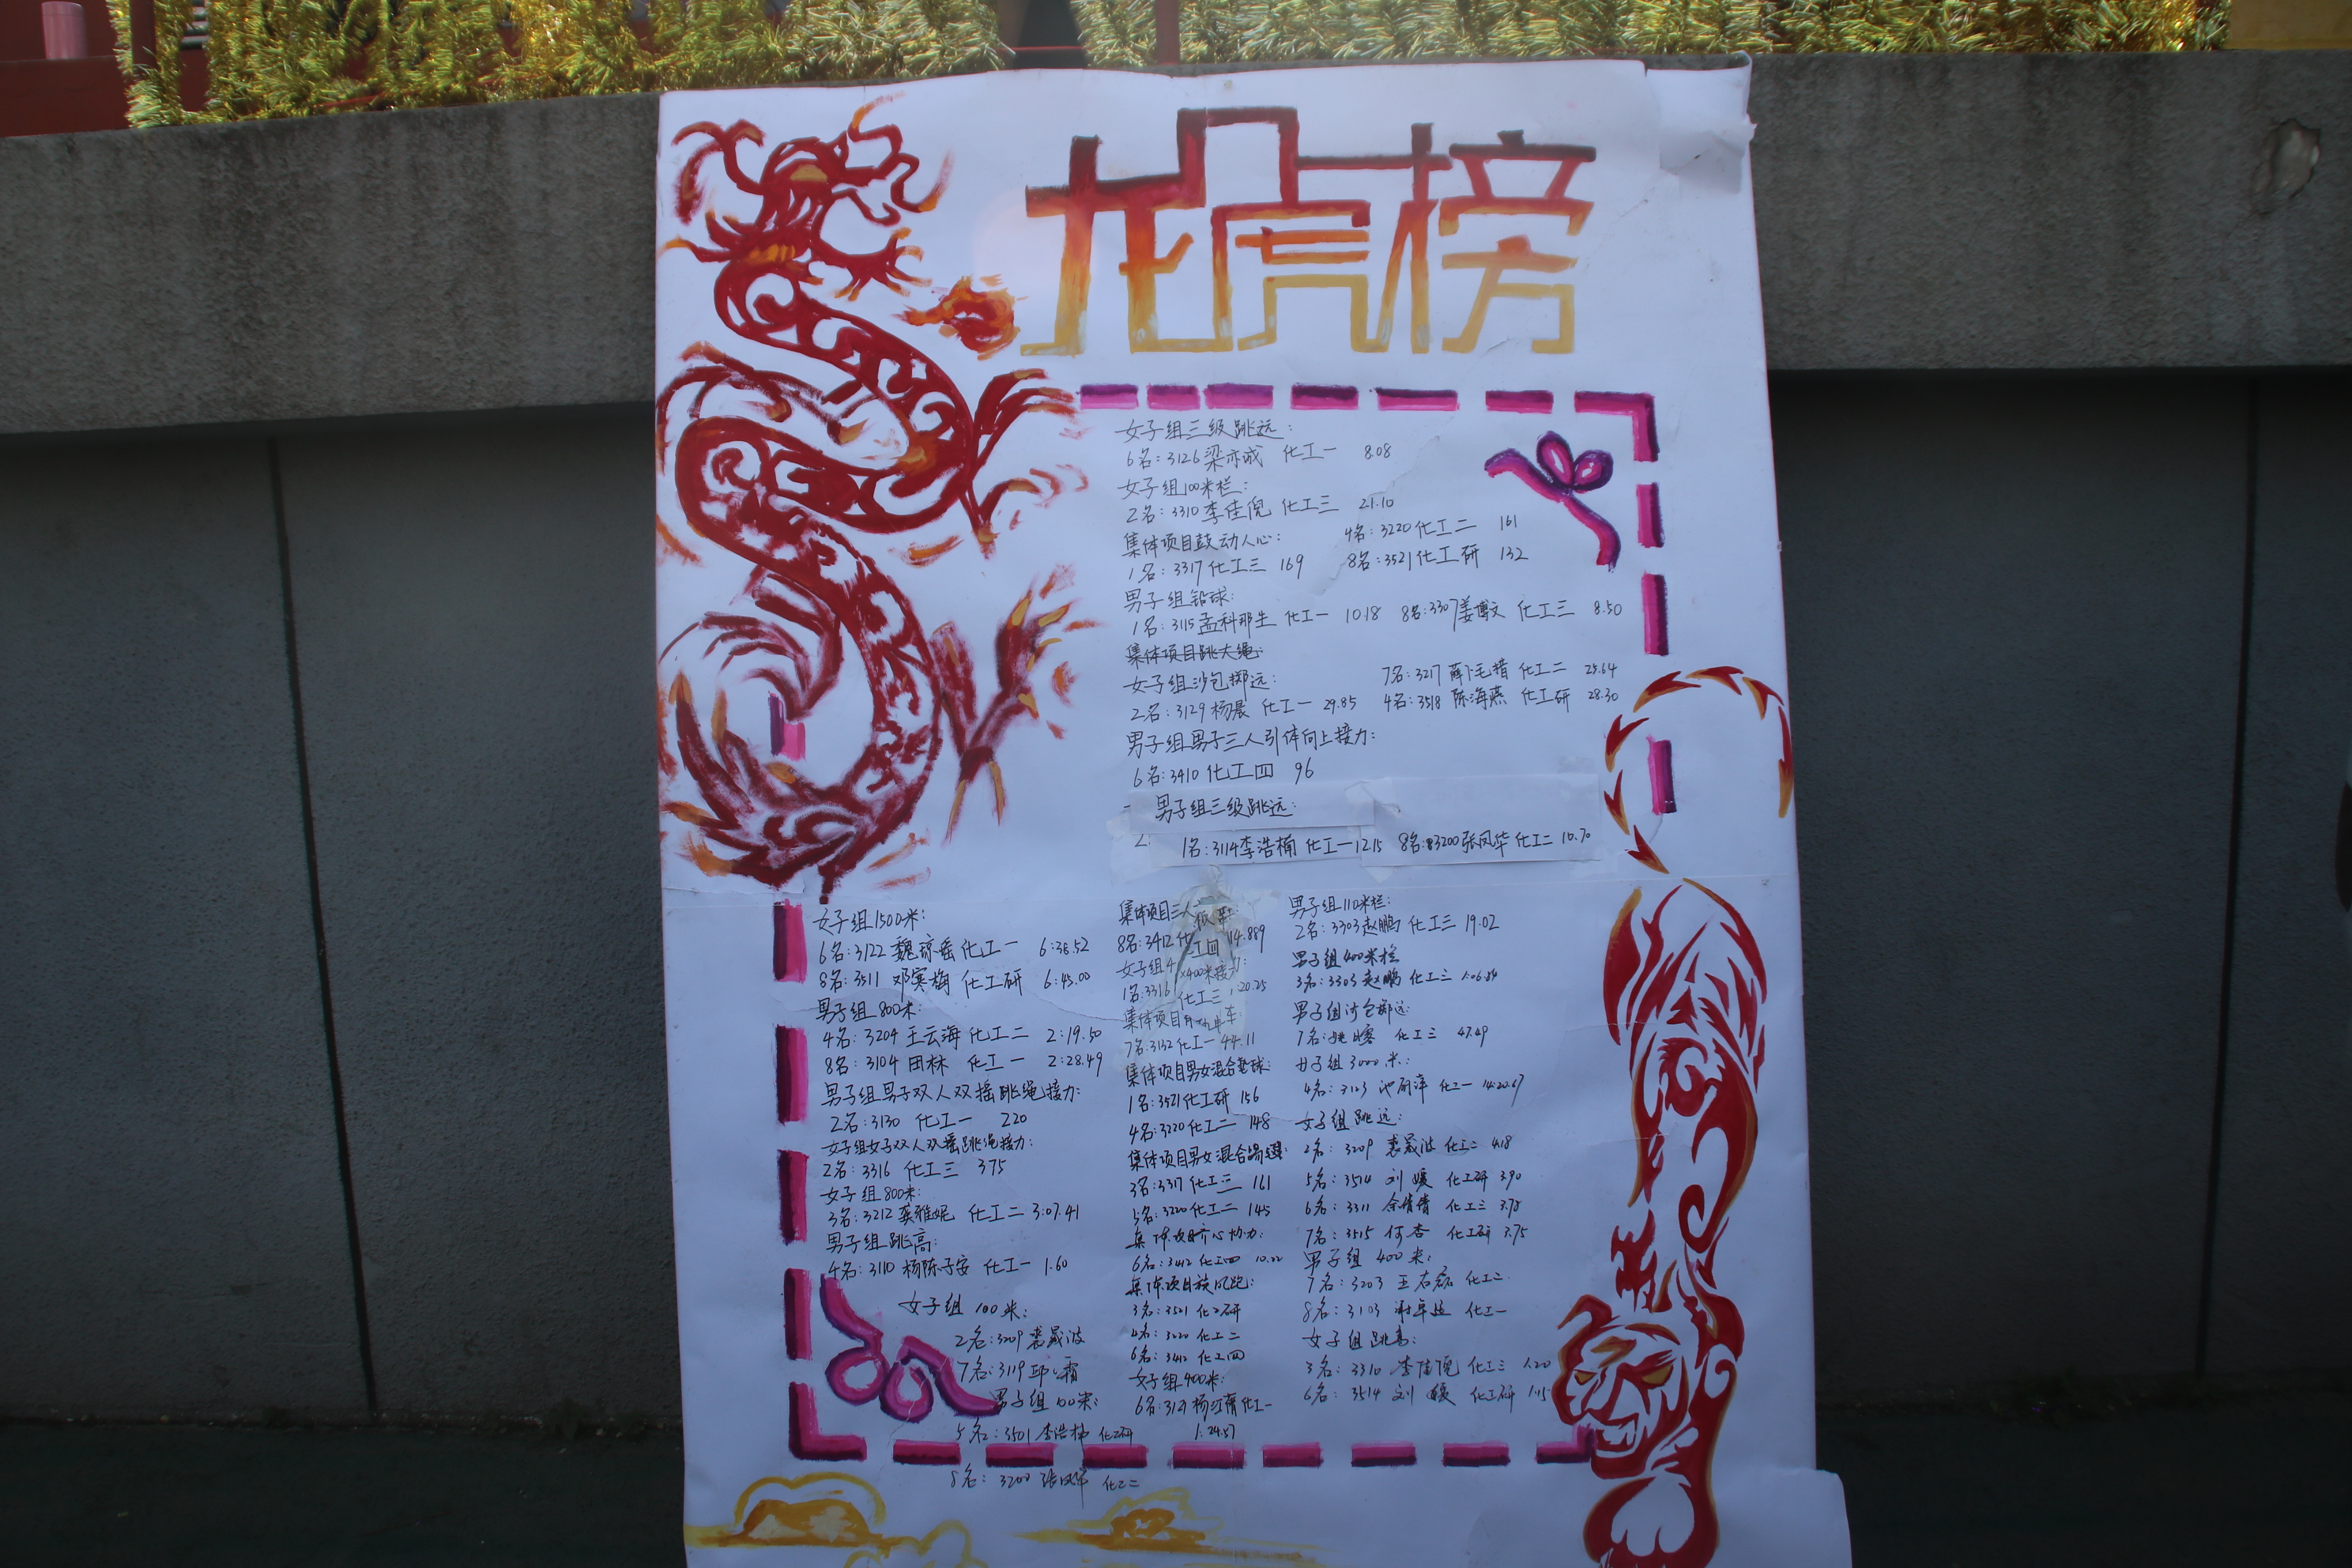 龙虎榜
女子组三级跳远:
6名:3126梁亦诚 化工一 8.08
女子组100米栏:
2名:3310李佳倪 化工三 21.10
集体项目鼓动人心:
1名:3317化工三 169
4名:3220化工二 161
8名:3521化工研 132
男子组铅球:
1名:3115孟科那生 化工一 10.18 8名:3307姜博文 化工三 8.50
集体项目跳大绳:
女子组沙包掷远:
2名:3129杨晨 化工一 29.85
7名:3217 化工二 25.64
4名:3518 陈海燕 化工研 28.30
男子组男子三人引体向上接力:
6名:3410 化工四 96
男子组三级跳远:
1名:3114李浩楠 化工一 12.15 8名:3200张凤华 化工二 10.70
女子组1500米:
6名:3122魏琼瑶 化工一 6:38.52
8名:3511 邓寅梅 化工研 6:45.00
男子组800米:
4名:3204王云海 化工二 2:19.50
8名:3104田林 化工一 2:28.49
男子组男子双人双摇跳绳接力:
2名:3130 化工一 220
女子组女子双人双摇跳绳接力:
2名:3316 化工三 375
女子组800米:
3名:3212龚雅妮 化工二 3:07.41
男子组跳高:
4名:3110杨陈子安 化工一 1.60
女子组100米:
2名:3209裘晟波
7名:3119邱霜
男子组100米:
5名:3501李浩 化工研
8名:3200张凤华 化工二
集体项目三人板鞋:
8名:3412化工四 14.889
女子组4×400米接力:
1名:3316化工三 20.25
集体项目
7名:3132化工一 44.11
集体项目男女混合垫球:
1名:3521化工研 156
4名:3220化工二 148
集体项目男女混合踢毽:
3名:3317化工三 161
5名:3220化工二 145
集体项目齐心协力:
6名:3412化工四 10.22
集体项目旋风跑:
3名:3521化工研
4名:3220化工二
6名:3412化工四
女子组400米:
6名:3121杨 化工一
1:24.57
男子组110米栏:
2名:3303赵鹏 化工三 19.02
男子组400米栏
3名:3303赵鹏 化工三 1:06.84
男子组沙包掷远:
7名: 化工三 47.49
女子组3000米:
4名:3123 化工一 14:20.67
女子组跳远:
2名:3209 裘晟波 化工二 4.18
5名:3514 刘媛 化工研 3.90
6名:3311 余倩倩 化工三 3.78
7名:3515 何杏 化工研 3.75
男子组400米:
7名:3203 王右磊 化工二
8名:3103 化工一
女子组跳高:
3名:3310 李佳倪 化工三 1.20
6名:3514 刘媛 化工研 1.15